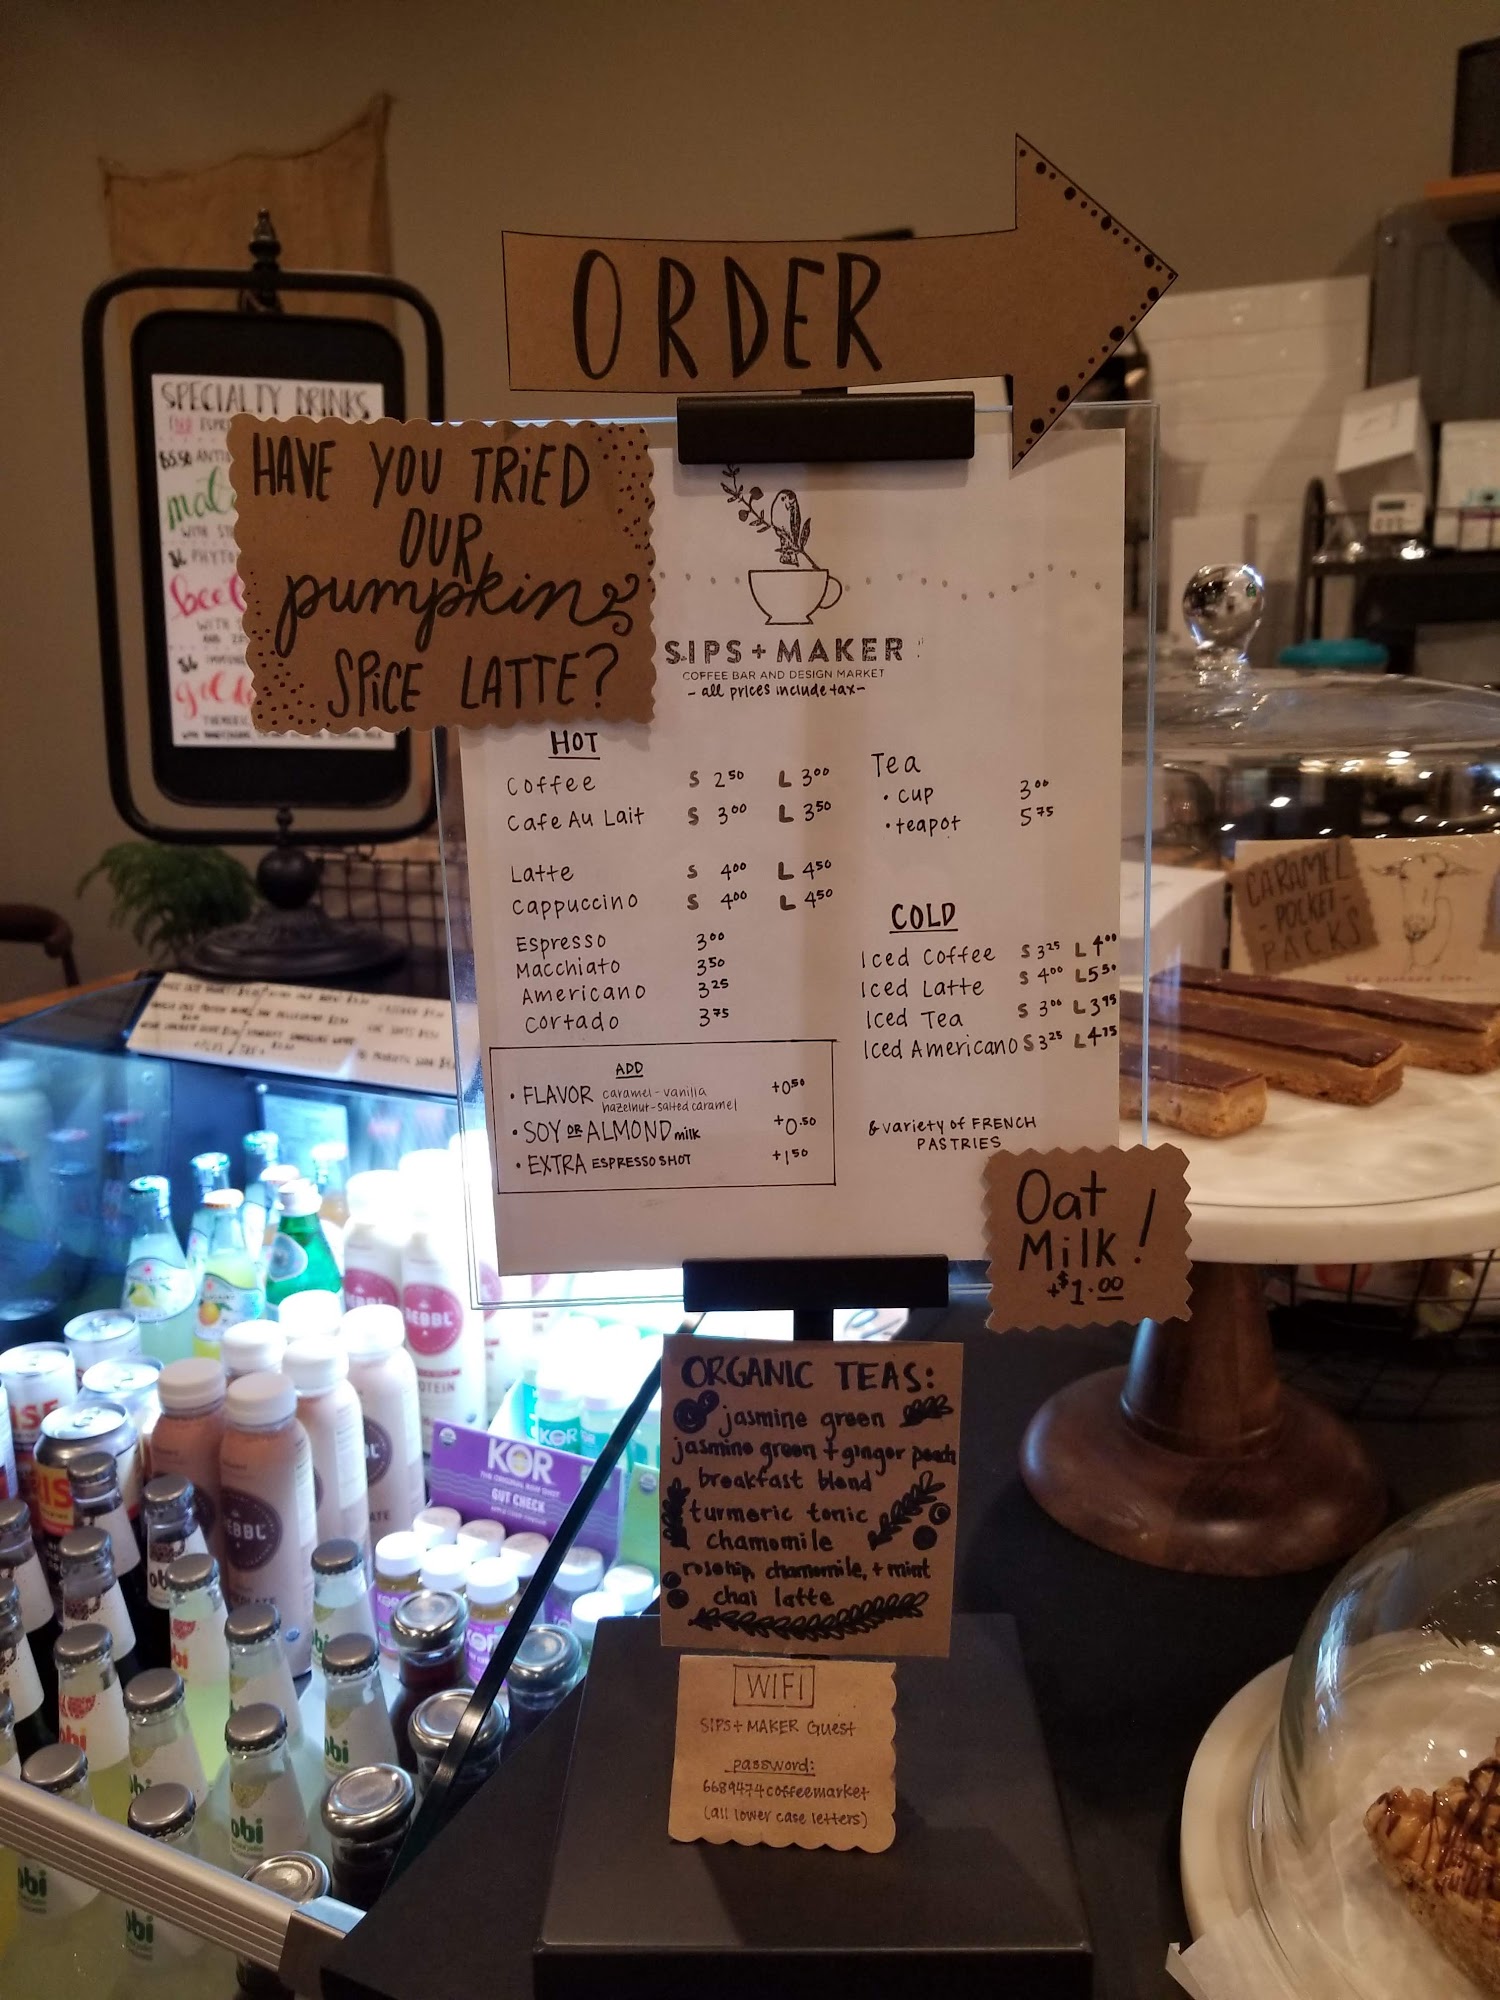 ORDER
SPECIALTY DRINKS
$5.50
WITH
HAVE YOU TRIED
OUR
pumpkin
SPICE LATTE?
SIPS + MAKER
COFFEE BAR AND DESIGN MARKET
- all prices include tax -
HOT
Coffee S 2.50 L 3.00
Cafe Au Lait S 3.00 L 3.50
Latte S 4.00 L 4.50
Cappuccino S 4.00 L 4.50
Espresso 3.00
Macchiato 3.50
Americano 3.25
Cortado 3.75
ADD
• FLAVOR caramel - vanilla +0.50
hazelnut - salted caramel
• SOY OR ALMOND milk +0.50
• EXTRA ESPRESSO SHOT +1.50
Tea
• cup 3.00
• teapot 5.75
COLD
Iced Coffee S 3.25 L 4.00
Iced Latte S 4.00 L 5.50
Iced Tea S 3.00 L 3.75
Iced Americano S 3.25 L 4.75
& variety of FRENCH
PASTRIES
CARAMEL
- POCKET -
PACKS
Oat
Milk!
+$1.00
ORGANIC TEAS:
jasmine green
jasmine green + ginger peach
breakfast blend
turmeric tonic
chamomile
rosehip, chamomile, + mint
chai latte
WIFI
SIPS + MAKER Guest
password:
6689474coffeemarket
(all lower case letters)
REBBL
KOR
THE ORIGINAL RAW SHOT
GUT CHECK
KOR
obi
obi
obi